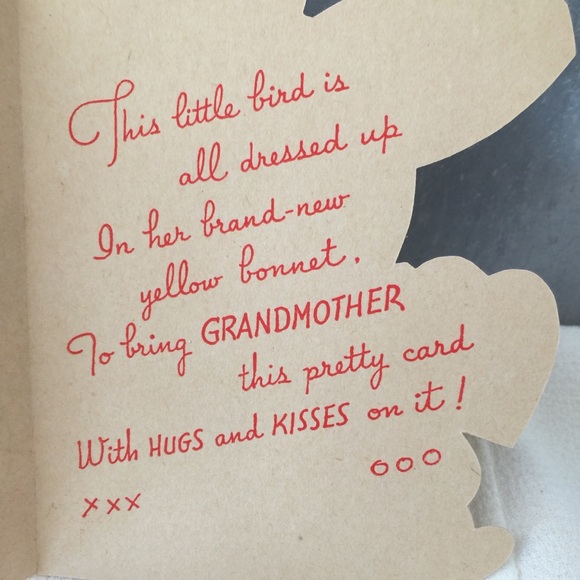 This little bird is
all dressed up
In her brand-new
yellow bonnet,
To bring GRANDMOTHER
this pretty card
With HUGS and KISSES on it!
xxx ooo